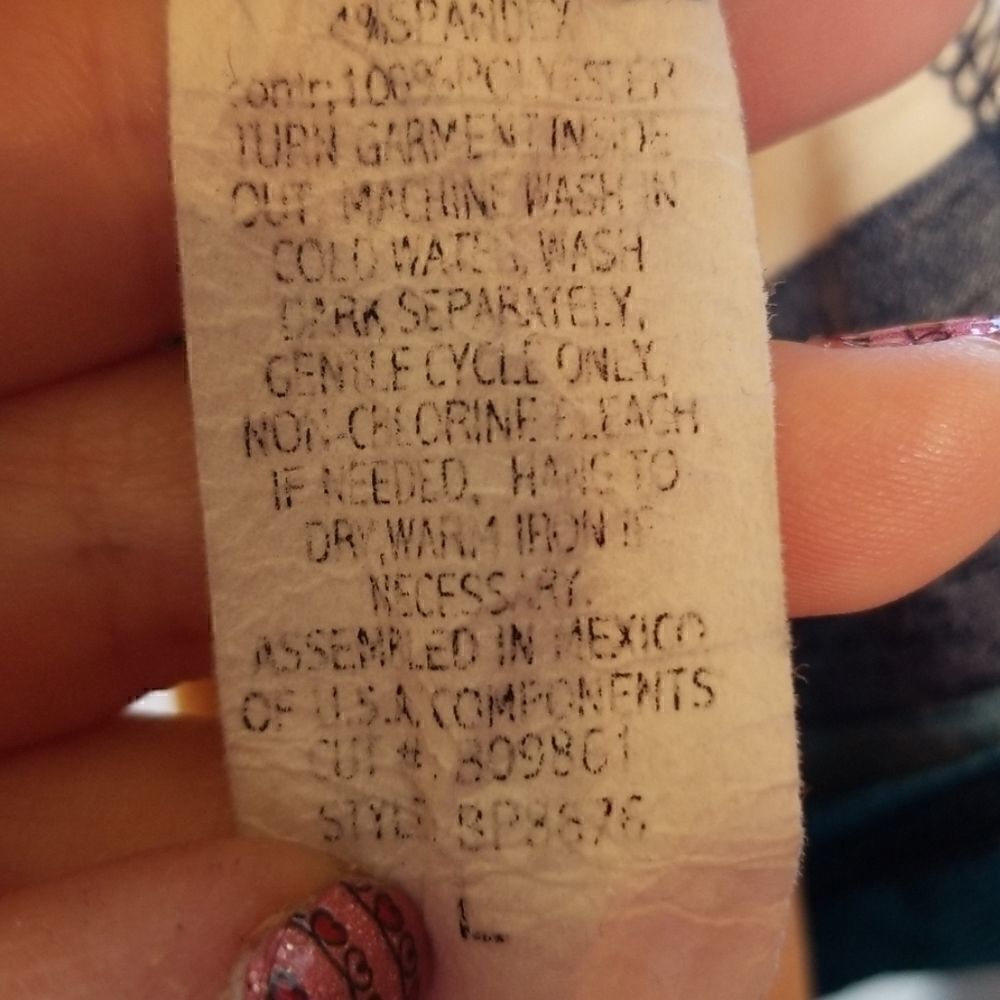 4%SPANDEX
contr;100%POLYESTER
TURN GARMENT INSIDE
OUT. MACHINE WASH IN
COLD WATER, WASH
DARK SEPARATELY,
GENTLE CYCLE ONLY,
NON-CHLORINE BLEACH
IF NEEDED. HANG TO
DRY,WARM IRON IF
NECESSARY.
ASSEMBLED IN MEXICO
OF U.S.A.COMPONENTS
CUT #:
STYLE:
L